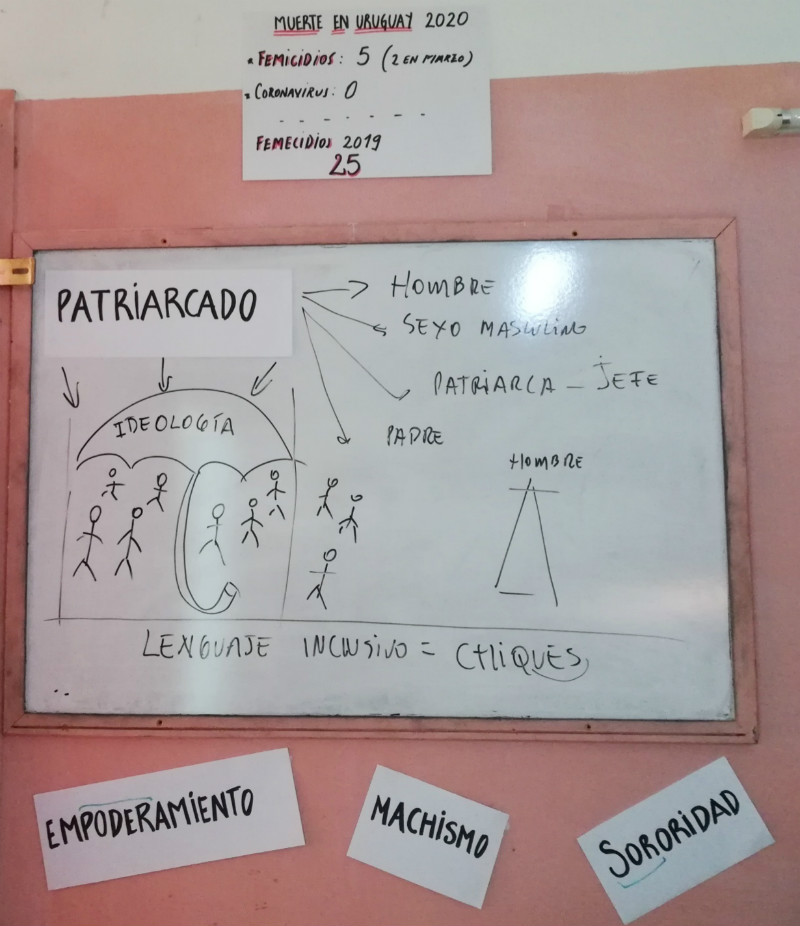 MUERTE EN URUGUAY 2020
• FEMICIDIOS: 5 (2 EN MARZO)
• CORONAVIRUS: 0
- - - - - - -
FEMECIDIOS 2019
25
PATRIARCADO
HOMBRE
SEXO MASCULINO
PATRIARCA - JEFE
PADRE
IDEOLOGÍA
HOMBRE
LENGUAJE INCLUSIVO = CHIQUES
EMPODERAMIENTO
MACHISMO
SORORIDAD